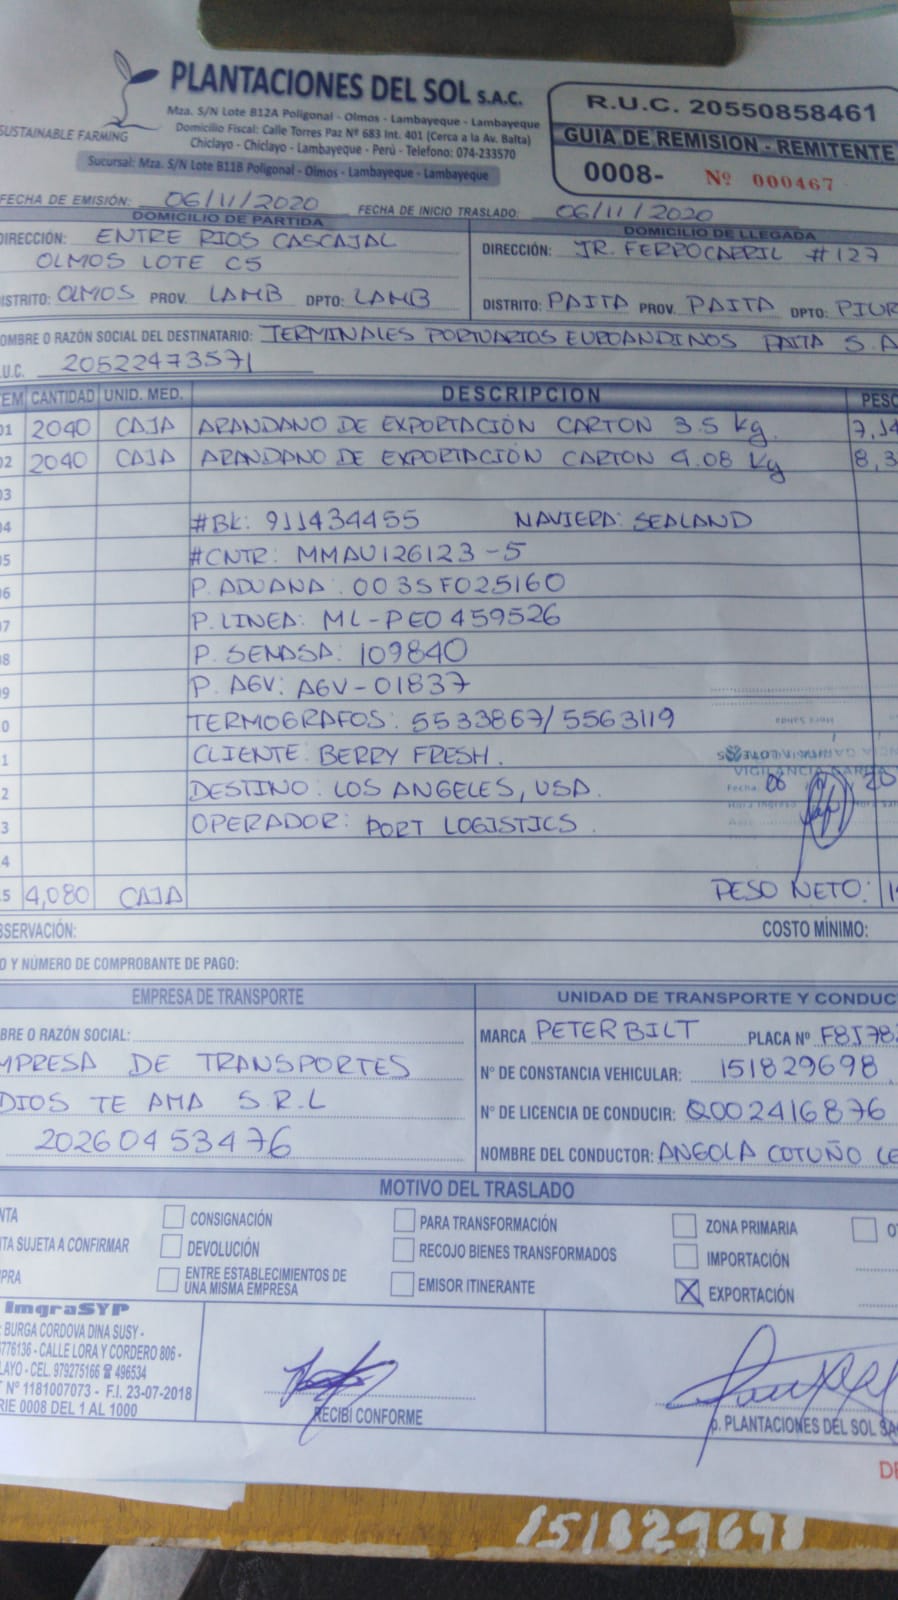 PLANTACIONES DEL SOL S.A.C.
SUSTAINABLE FARMING
Mza. S/N Lote B12A Poligonal - Olmos - Lambayeque - Lambayeque
Domicilio Fiscal: Calle Torres Paz Nº 683 Int. 401 (Cerca a la Av. Balta)
Chiclayo - Chiclayo - Lambayeque - Perú - Telefono: 074-233570
Sucursal: Mza. S/N Lote B11B Poligonal - Olmos - Lambayeque - Lambayeque
R.U.C. 20550858461
GUIA DE REMISION - REMITENTE
0008- Nº 000467
FECHA DE EMISIÓN: 06/11/2020 FECHA DE INICIO TRASLADO: 06/11/2020
DOMICILIO DE PARTIDA
DIRECCIÓN: ENTRE RIOS CASCAJAL
OLMOS LOTE C5
DISTRITO: OLMOS PROV. LAMB DPTO: LAMB
DOMICILIO DE LLEGADA
DIRECCIÓN: JR. FERROCARRIL #127
DISTRITO: PAITA PROV. PAITA DPTO: PIUR
OMBRE O RAZÓN SOCIAL DEL DESTINATARIO: TERMINALES PORTUARIOS EUROANDINOS PAITA S.A
.U.C. 20522473571
EM CANTIDAD UNID. MED. DESCRIPCION PESO
01 2040 CAJA ARANDANO DE EXPORTACIÓN CARTON 3.5 kg. 7,14
02 2040 CAJA ARANDANO DE EXPORTACIÓN CARTON 4.08 kg 8,3
03
04 #BK: 911434455 NAVIERA: SEALAND
05 #CNTR: MMAU126123-5
06 P. ADUANA: 003SF025160
07 P. LINEA: ML-PE0459526
08 P. SENASA: 109840
09 P. AGV: AGV-01837
0 TERMOGRAFOS: 5533867/5563119
1 CLIENTE: BERRY FRESH.
2 DESTINO: LOS ANGELES, USA.
3 OPERADOR: PORT LOGISTICS.
4
5 4,080 CAJA PESO NETO: 1
VIGILANCIA
Fecha: 06
BSERVACIÓN: COSTO MÍNIMO:
O Y NÚMERO DE COMPROBANTE DE PAGO:
EMPRESA DE TRANSPORTE
BRE O RAZÓN SOCIAL:
MPRESA DE TRANSPORTES
DIOS TE AMA S.R.L
20260453476
UNIDAD DE TRANSPORTE Y CONDUC
MARCA PETERBILT PLACA Nº F8J78
Nº DE CONSTANCIA VEHICULAR: 151829698
Nº DE LICENCIA DE CONDUCIR: Q002416876
NOMBRE DEL CONDUCTOR: ANGOLA COTUÑO
MOTIVO DEL TRASLADO
NTA
TA SUJETA A CONFIRMAR
PRA
CONSIGNACIÓN
DEVOLUCIÓN
ENTRE ESTABLECIMIENTOS DE
UNA MISMA EMPRESA
PARA TRANSFORMACIÓN
RECOJO BIENES TRANSFORMADOS
EMISOR ITINERANTE
ZONA PRIMARIA
IMPORTACIÓN
X EXPORTACIÓN
ImgraSYP
: BURGA CORDOVA DINA SUSY -
776136 - CALLE LORA Y CORDERO 806 -
LAYO - CEL. 979275166 ☎ 496534
T Nº 1181007073 - F.I. 23-07-2018
RIE 0008 DEL 1 AL 1000
RECIBÍ CONFORME
p. PLANTACIONES DEL SOL SA
DE
151829698